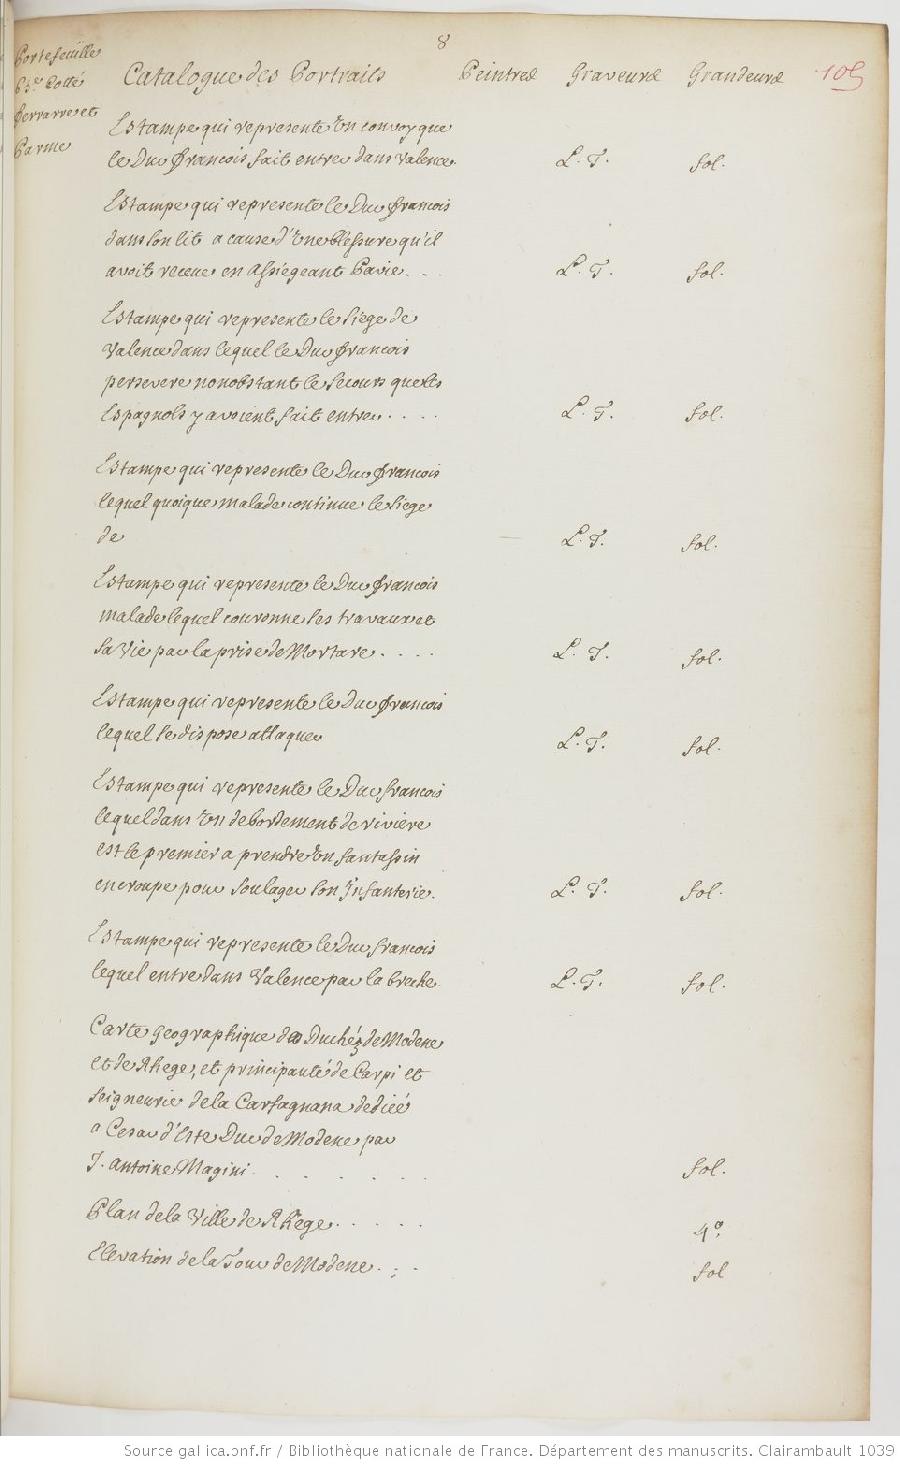 8
Portefeuille
P3.er Cotté
ferrarre et
Parme
Catalogue des Portraits Peintres Graveurs Grandeurs 105
Estampe qui represente Un convoy que
le Duc francois fait entrer dans Valence. L. T. fol.
Estampe qui represente le Duc francois
dans son lit a cause d'Une blessure qu'il
avoit receue en assiegeant Pavie. . . L. T. fol.
Estampe qui represente le siege de
Valence dans lequel le Duc francois
persevere nonobstant le secours que les
Espagnols y avoient fait entrer. . . . L. T. fol.
Estampe qui represente le Duc francois
lequel quoique malade continue le siege
de L. T. fol.
Estampe qui represente le Duc francois
malade lequel couronne les travaux et
sa Vie par la prise de Mortare. . . . L. T. fol.
Estampe qui represente le Duc francois
lequel se dispose attaquer L. T. fol.
Estampe qui represente le Duc francois
lequel dans Un debordement de riviere
est le premier a prendre Un fantassin
en croupe pour soulager son Infanterie. L. T. fol.
Estampe qui represente le Duc francois
lequel entre dans Valence par la breche L. T. fol.
Carte Geographique des Duchéz de Modene
et de Rhege, et principauté de Carpi et
seigneurie de la Carfagnana dediée
a Cesar d'Este Duc de Modene par
J. Antoine Magini . . . . . fol.
Plan de la Ville de Rhege . . . . . 4º.
Elevation de la Tour de Modene . : . fol
Source gallica.bnf.fr / Bibliothèque nationale de France. Département des manuscrits. Clairambault 1039